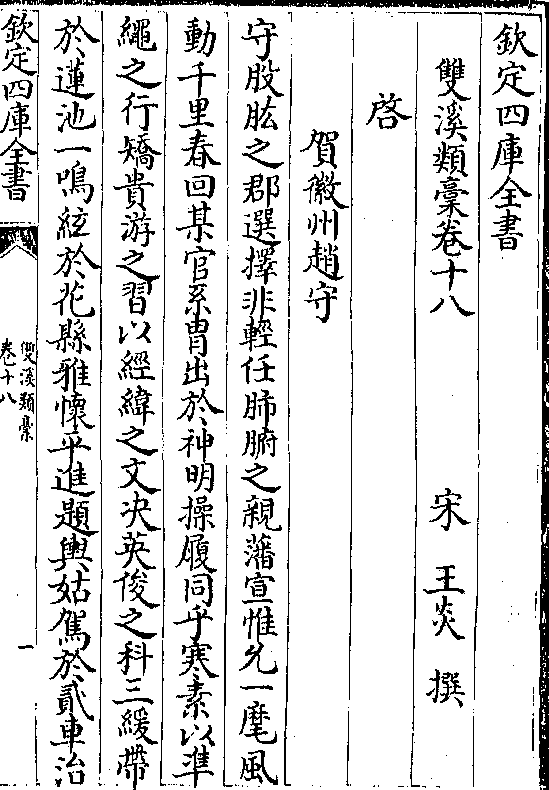 欽定四庫全書
雙溪類藁卷十八　宋　王炎　撰
啓
賀徽州趙守
守股肱之郡選擇非輕任肺腑之親藩宣惟允一麾風
動千里春回某官系胄出於神明操履同乎寒素以準
繩之行矯貴游之習以經緯之文决英俊之科三緩帶
於蓮池一鳴絃於花縣雅懷平進題輿姑駕於貳車治
欽定四庫全書
雙溪類藁
卷十八
一